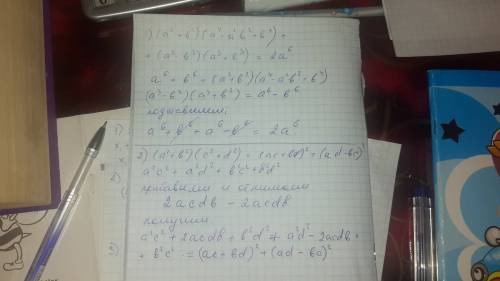 1) (a²+b²)(a⁴-a²b²-b⁴)+
+(a³-b³)(a³+b³) = 2a⁶
a⁶+b⁶ = (a²+b²)(a⁴-a²b²-b⁴)
(a³-b³)(a³+b³) = a⁶-b⁶
подставим:
a⁶+b⁶+a⁶-b⁶ = 2a⁶
2) (a²+b²)(c²+d²) = (ac+bd)²+(ad-bc)²
a²c²+a²d²+b²c²+b²d²
прибавим и отнимем
2acdb - 2acdb
получим
a²c²+2acdb+b²d²+a²d²-2acdb+
+b²c² = (ac+bd)²+(ad-bc)²
1)
2)
3)